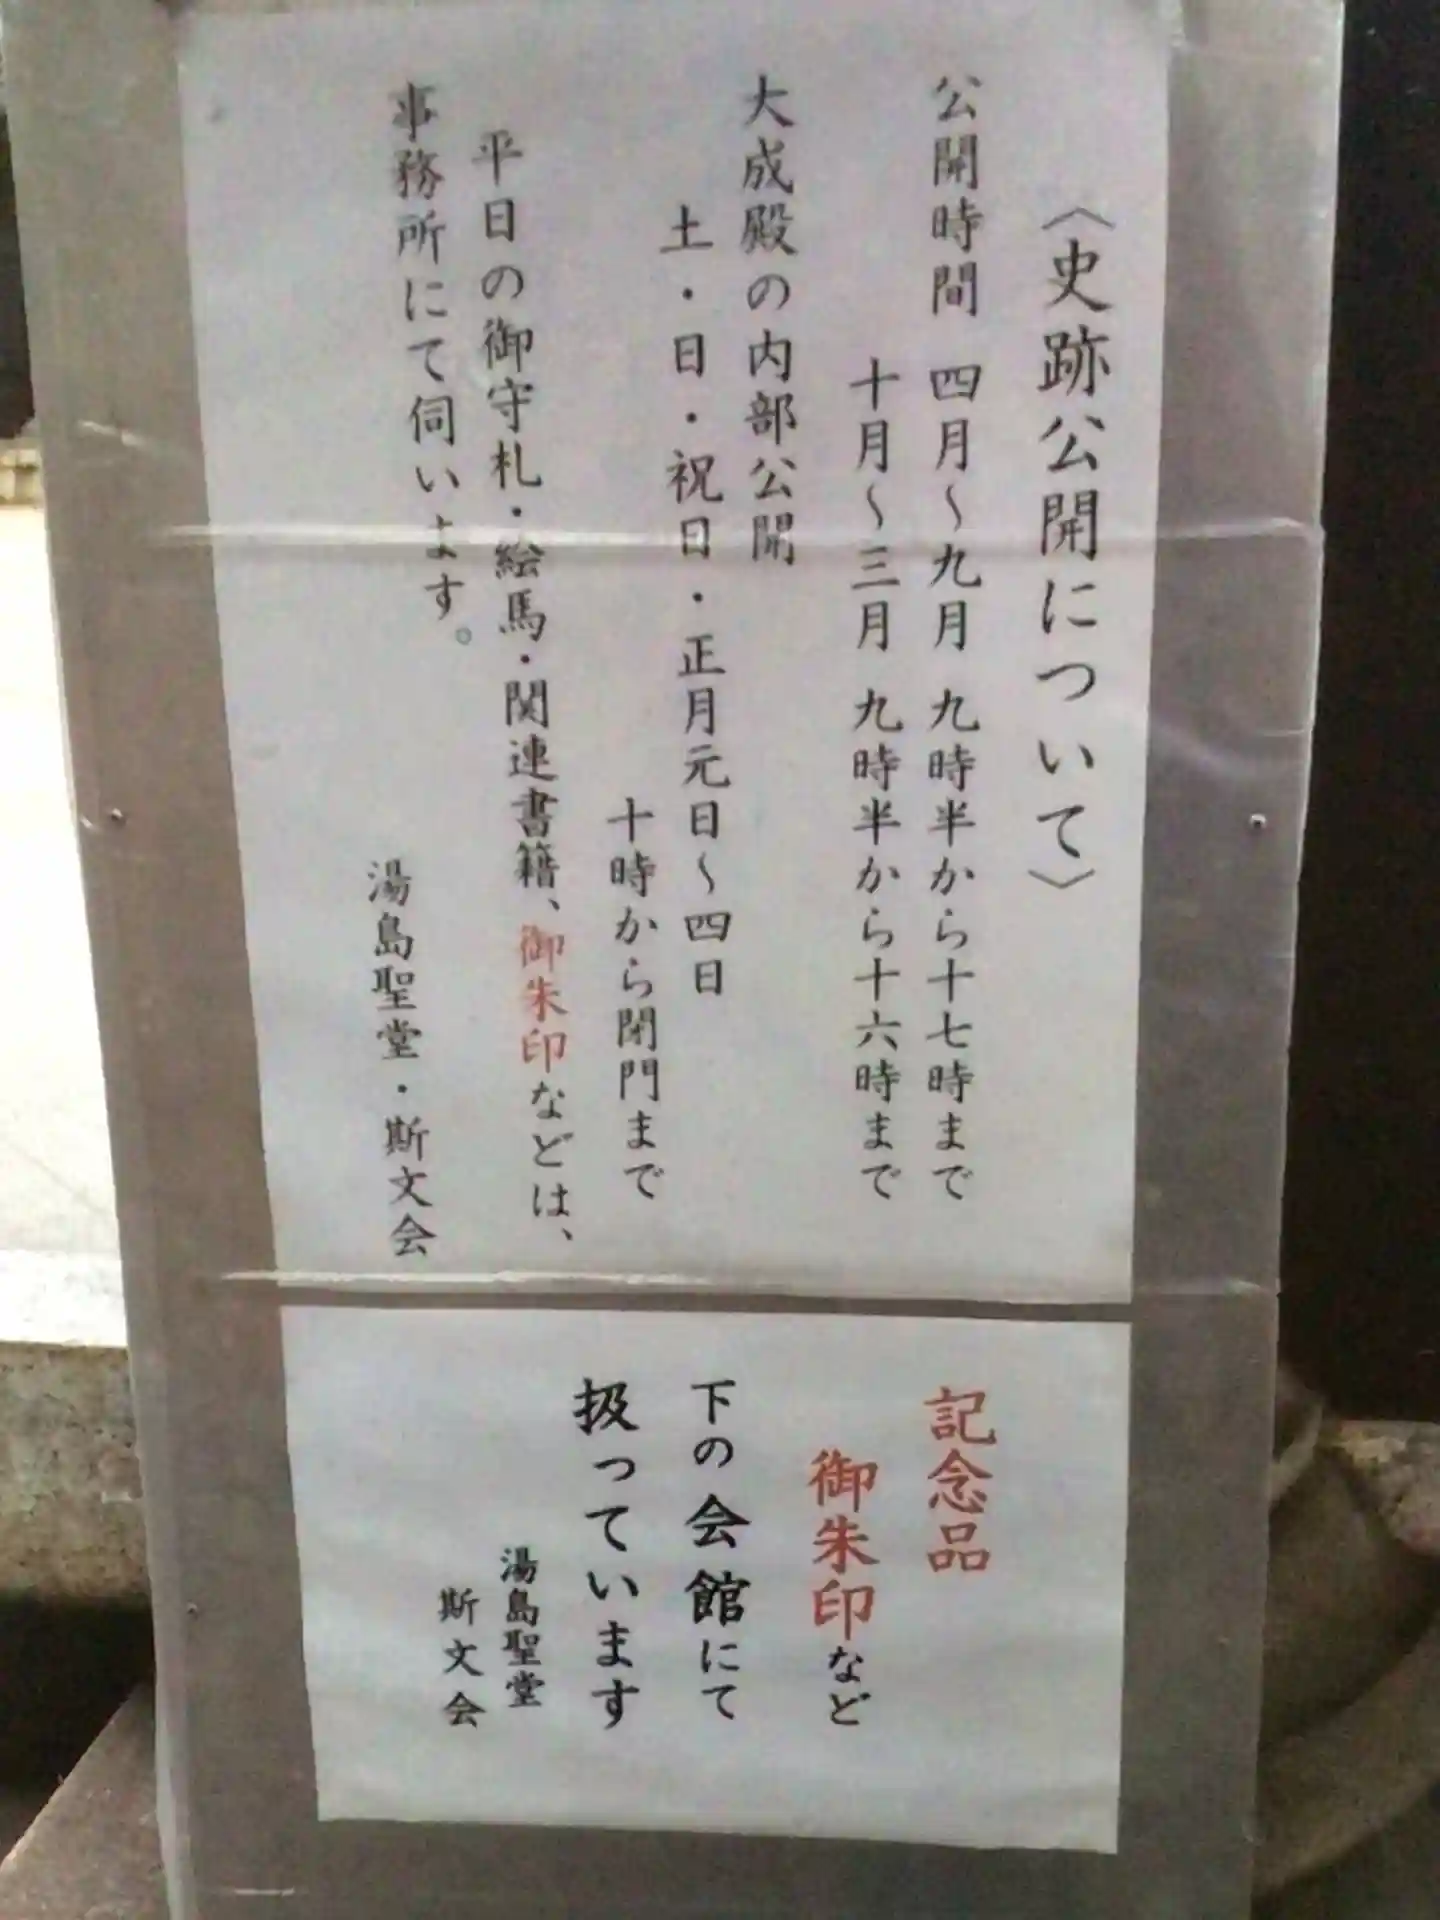 〈史跡公開について〉
公開時間 四月～九月 九時半から十七時まで
十月～三月 九時半から十六時まで
大成殿の内部公開
土・日・祝日・正月元日～四日
十時から閉門まで
平日の御守札・絵馬・関連書籍、御朱印などは、
事務所にて伺います。
湯島聖堂・斯文会
記念品
御朱印など
下の会館にて
扱っています
湯島聖堂
斯文会